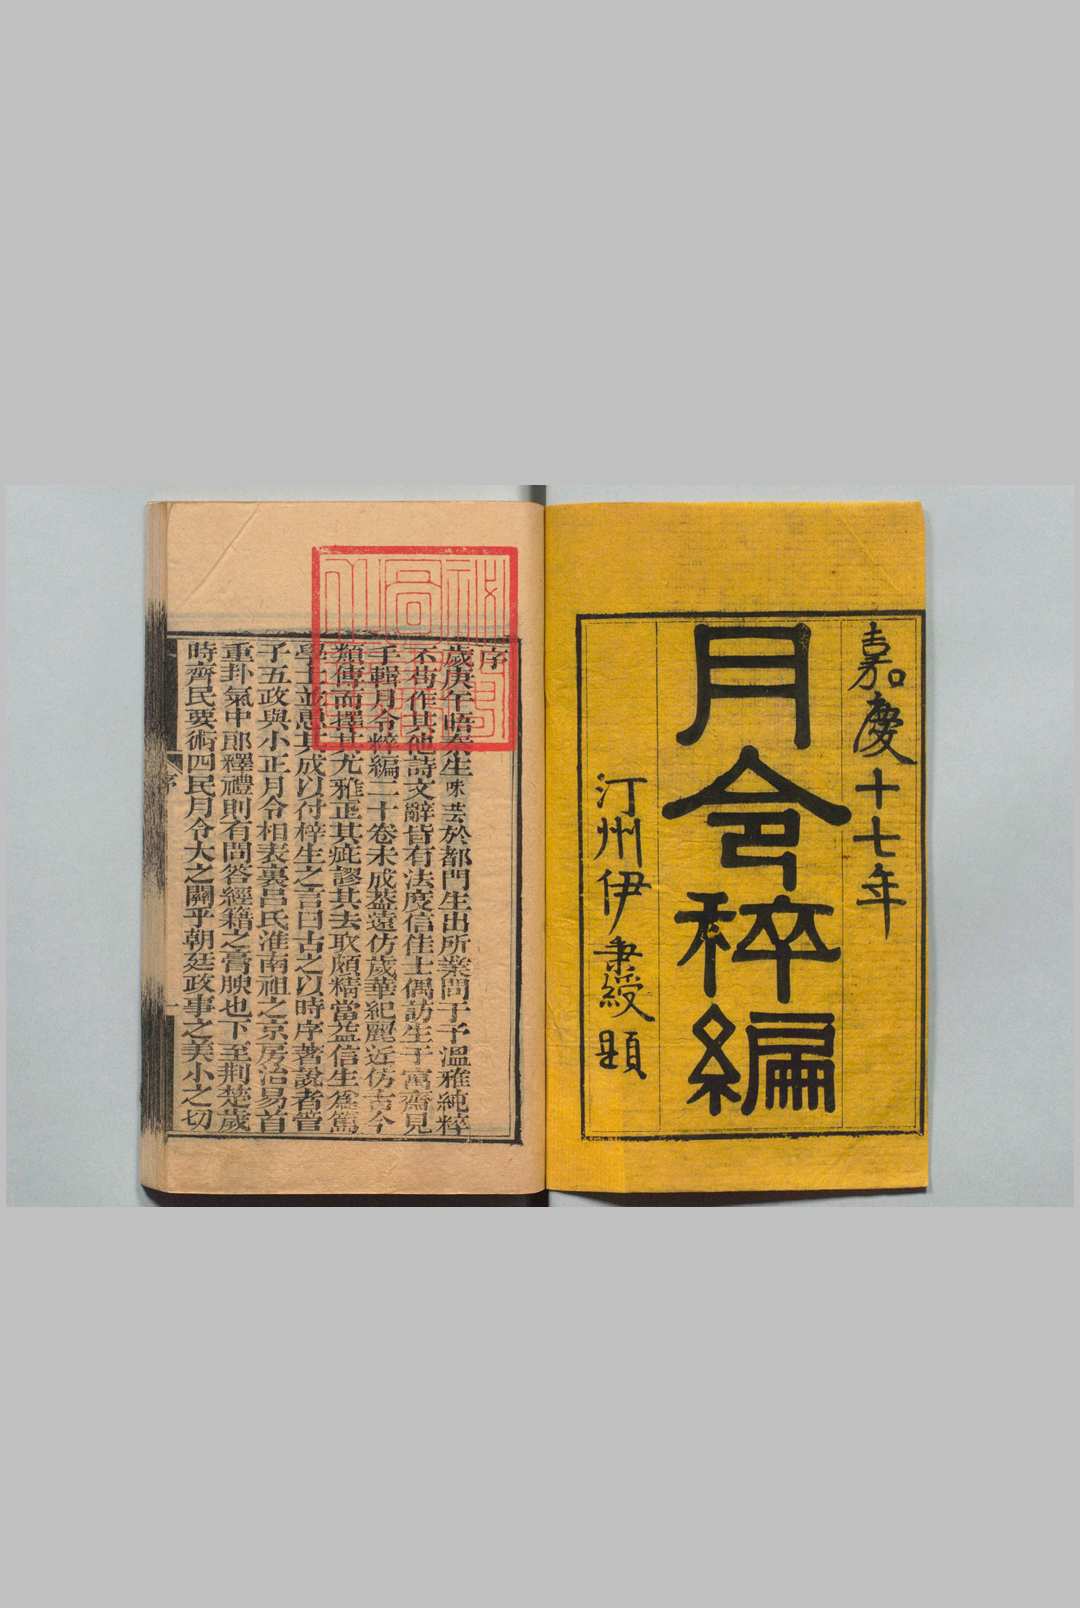 嘉慶十七年
月令稡編
汀州伊秉綬題
序
歲庚午晤秦生味芸於都門生出所業問于予溫雅純粹
不茍作其他詩文辭皆有法度信佳士偶訪生于寓齋見
手輯月令粹編二十卷未成葢遠仿歲華紀麗近仿古今
類傳而擇其尤雅正其疵謬其去取頗精當益信生爲篤
學士並思其成以付梓生之言曰古之以時序著說者管
子五政與小正月令相表裏呂氏淮南祖之京房治易首
重卦氣中郎釋禮則有問答經籍之膏腴也下至荆楚歲
時齊民要術四民月令大之關乎朝廷政事之美小之切
序
一